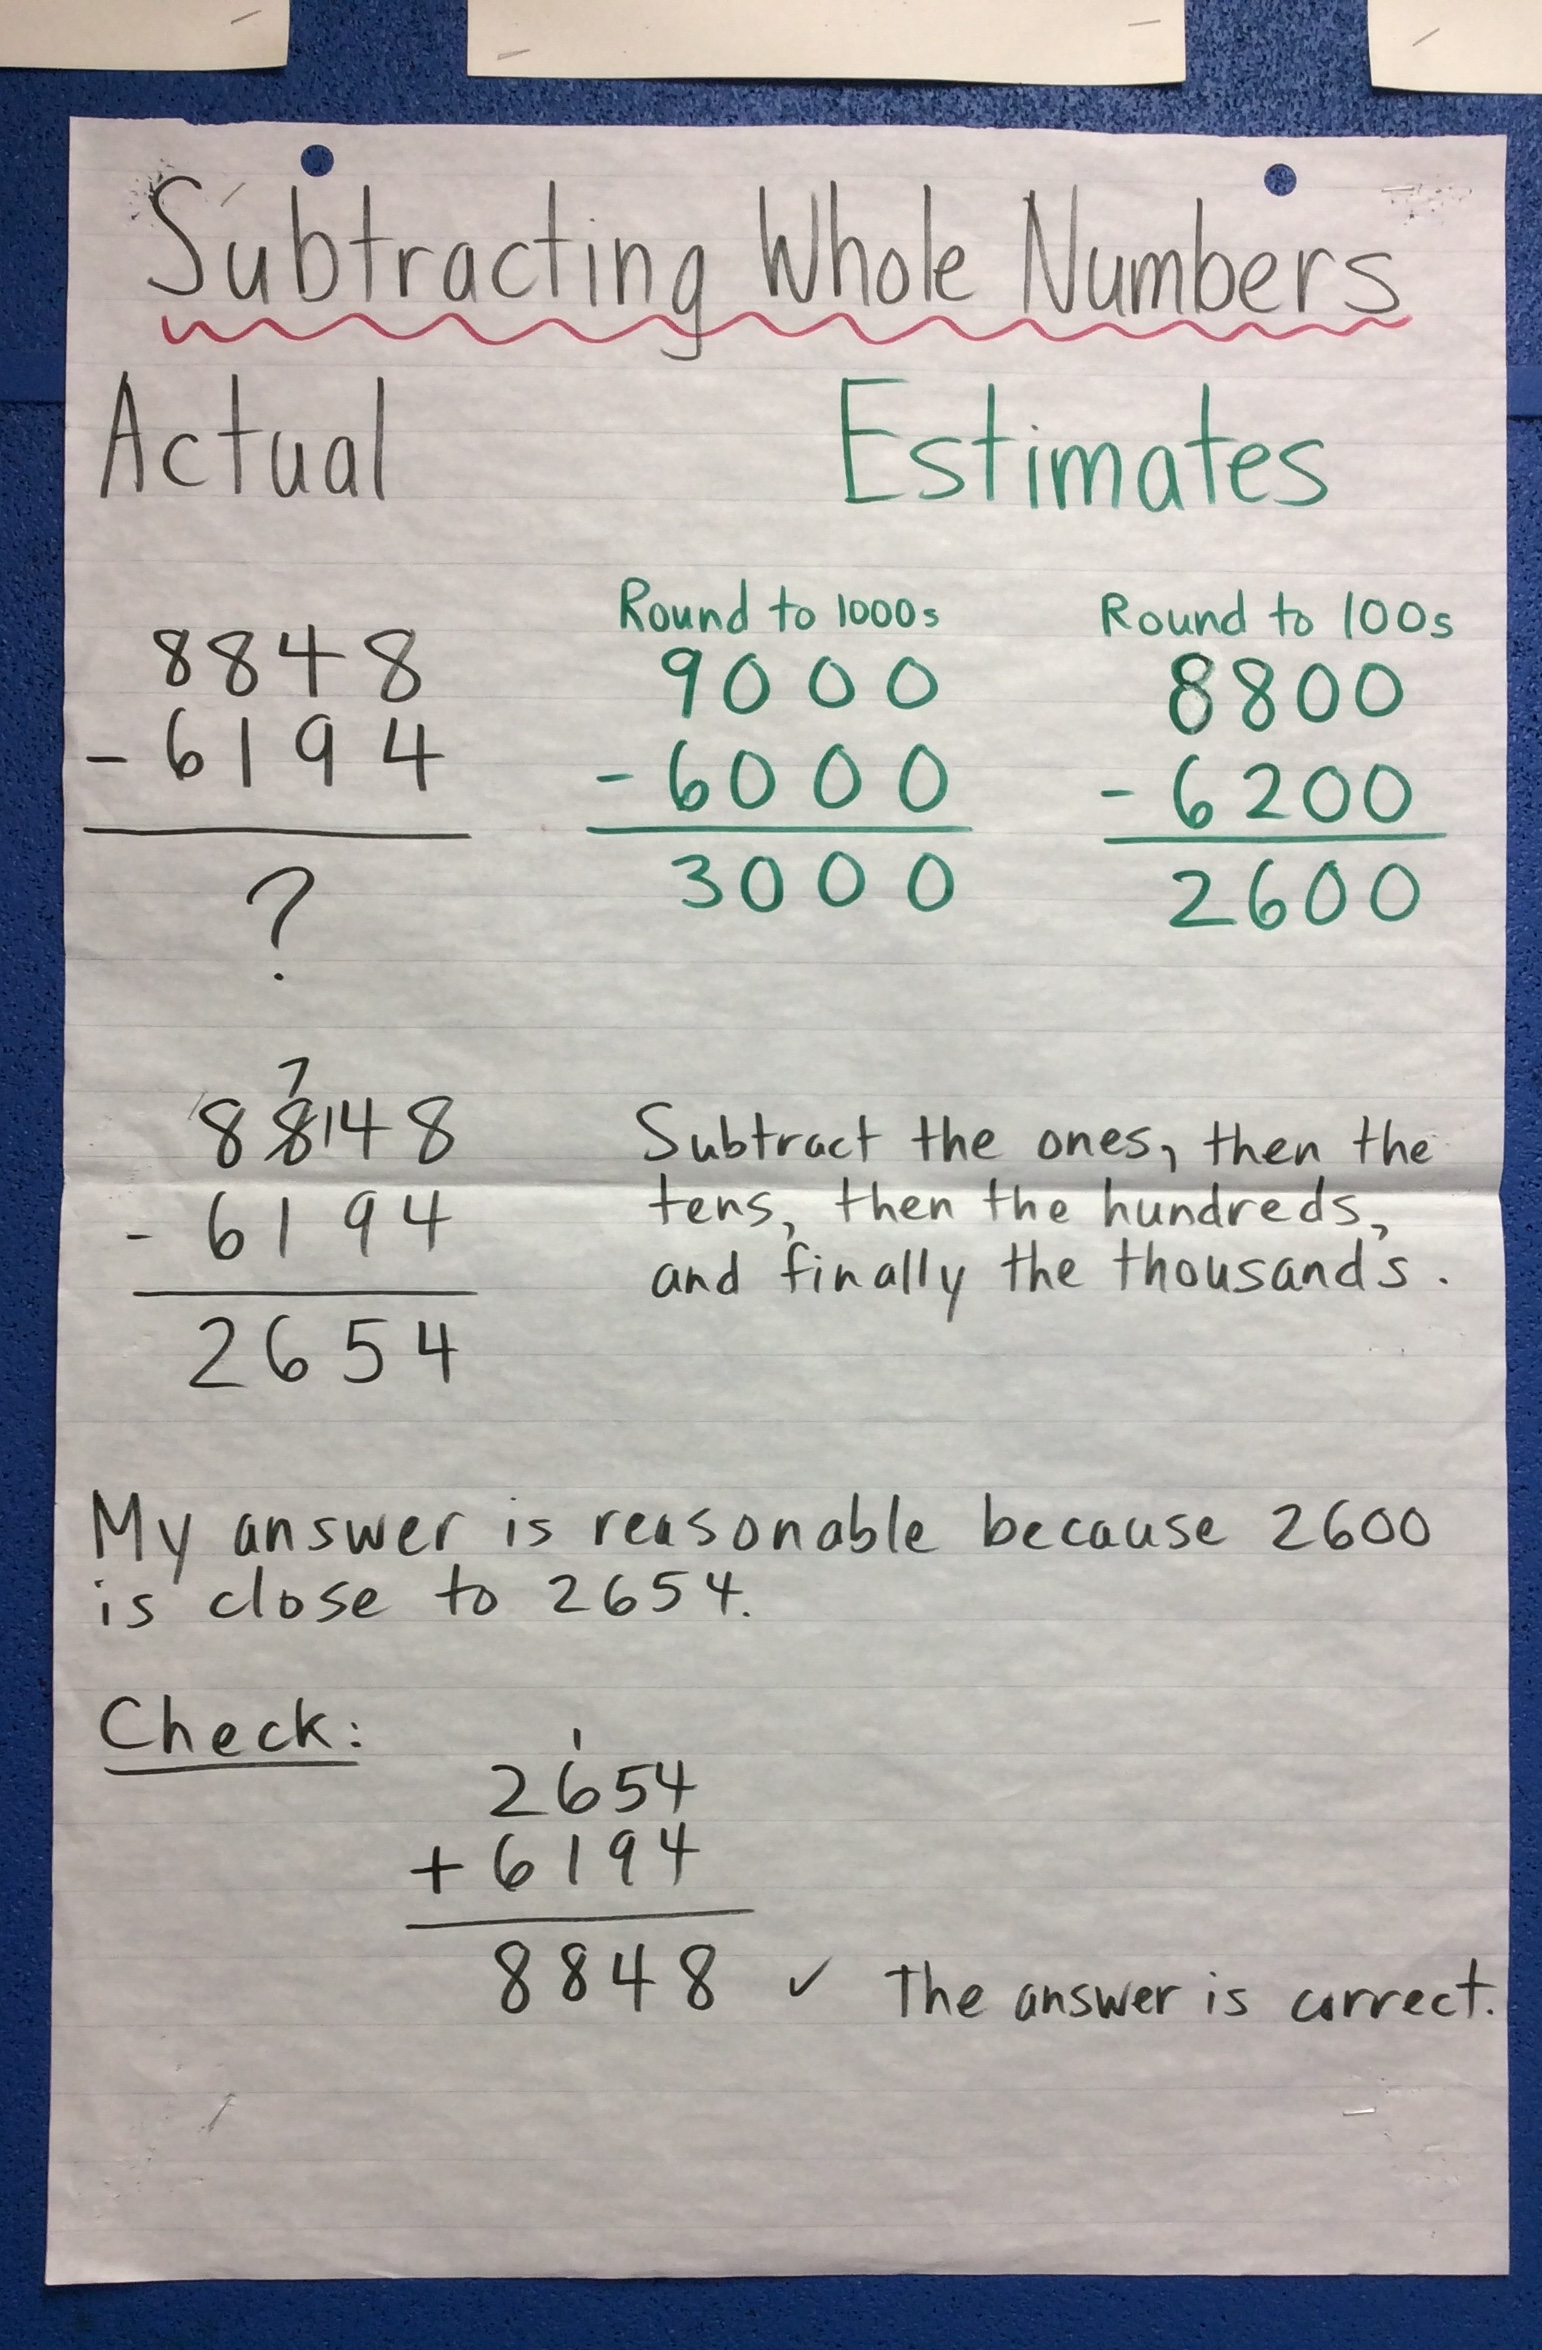 Subtracting Whole Numbers
Actual
Estimates
Round to 1000s
Round to 100s
8848
9000
8800
- 6194
- 6000
- 6200
?
3000
2600
7
88148
- 6194
2654
Subtract the ones, then the
tens, then the hundreds,
and finally the thousands.
My answer is reasonable because 2600
is close to 2654.
Check:
1
2654
+ 6194
8848 ✓ The answer is correct.